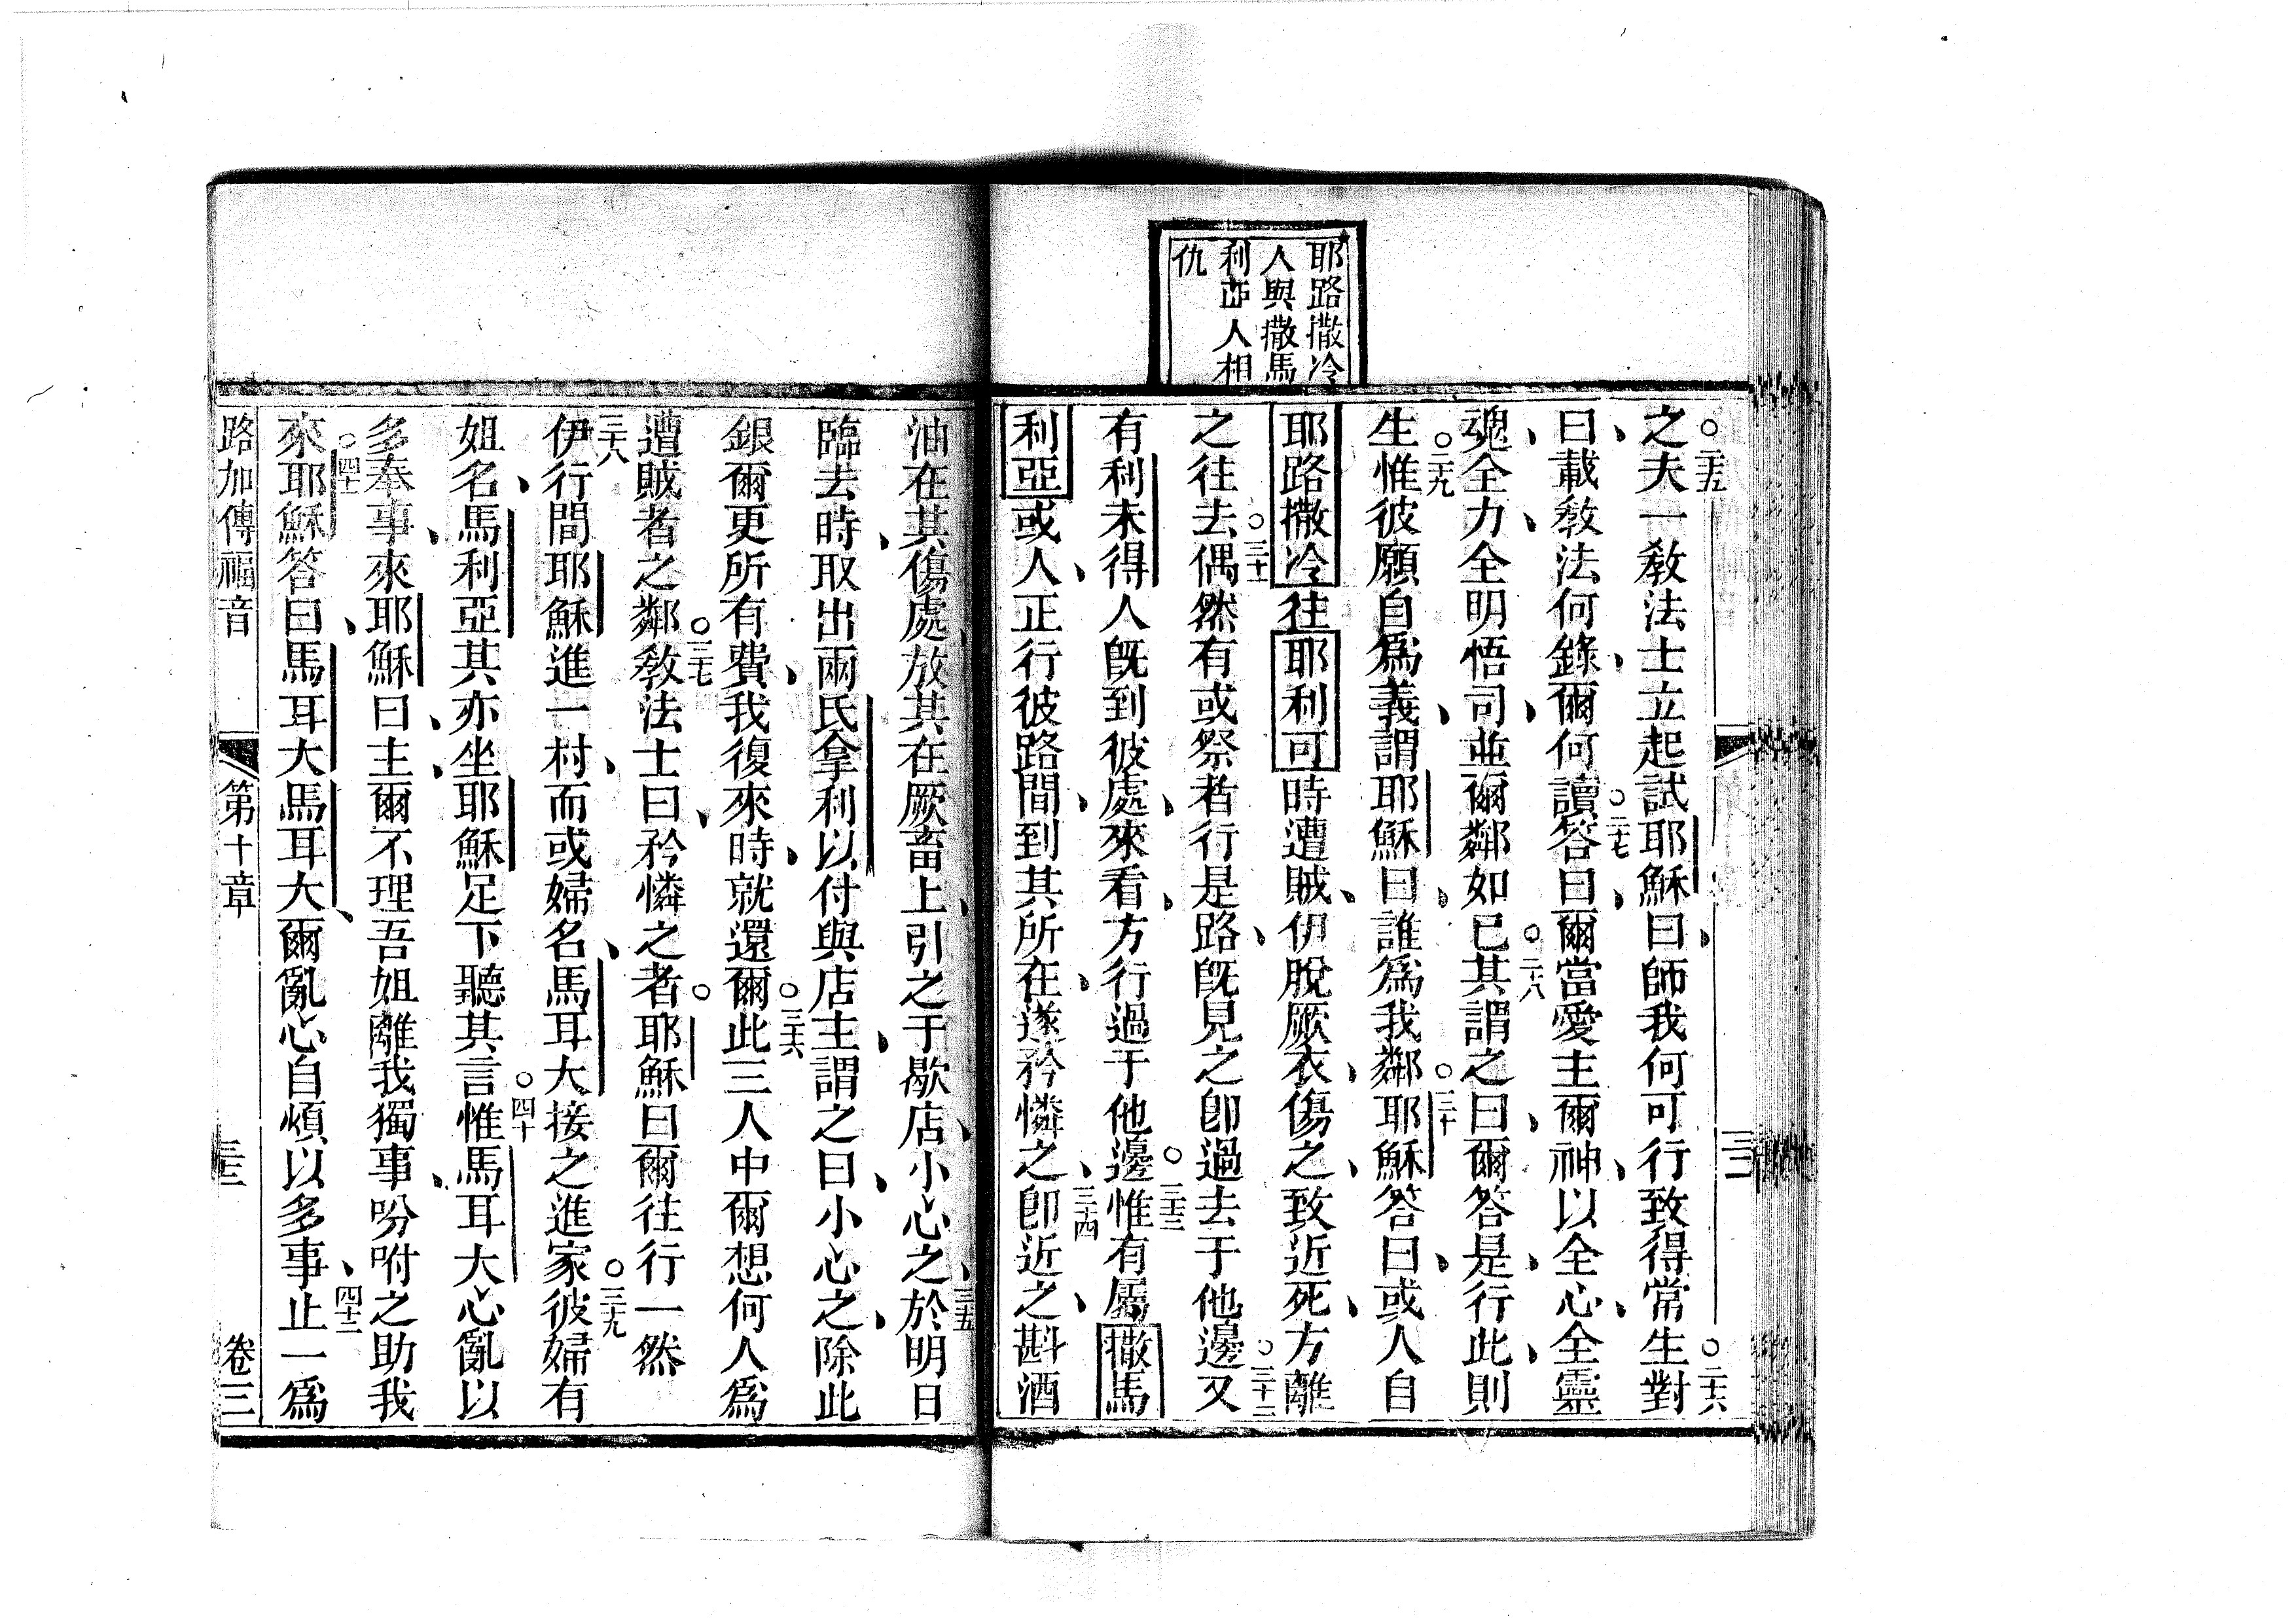 耶路撒冷
人與撒馬
利亞人相
仇
○二十五
之夫一敎法士立起試耶穌曰、師我何可行致得常生對
○二十六
曰、載敎法何錄、爾何讀答曰、爾當愛主爾神、以全心、全靈
○二十七
魂、全力、全明悟司、並爾鄰如已其謂之曰、爾答是、行此、則
○二十八
生惟彼願自爲義、謂耶穌曰、誰爲我鄰耶穌答曰、或人自
○二十九
○三十
耶路撒冷往耶利可時遭賊、伊脫厥衣、傷之、致近死、方離
之往去偶然有或祭者行是路、旣見之卽過去于他邊又
○三十一
○三十二
有利未得人旣到彼處、來看、方行過于他邊惟有屬撒馬
○三十三
利亞或人、正行彼路間、到其所在、遂矜憐之、卽近之、斟酒
三十四
油在其傷處放其在厥畜上、引之于歇店、小心之、於明日
三十五
臨去時、取出兩氏拿利以付與店主、謂之曰、小心之、除此
銀爾更所有費、我復來時、就還爾此三人中爾想何人爲
○三十六
遭賊者之鄰敎法士曰、矜憐之者耶穌曰爾往行一然
○三十七
伊行間耶穌進一村、而或婦名、馬耳大接之進家彼婦有
三十八
○三十九
姐、名馬利亞其亦坐耶穌足下聽其言惟馬耳大心亂以
○四十
多奉事、來耶穌曰、主、爾不理吾姐離我獨事、吩咐之助我
來耶穌答曰、馬耳大馬耳大、爾亂心自煩以多事、止一爲
○四十一
四十二
路加傳福音
第十章
三十三
卷三